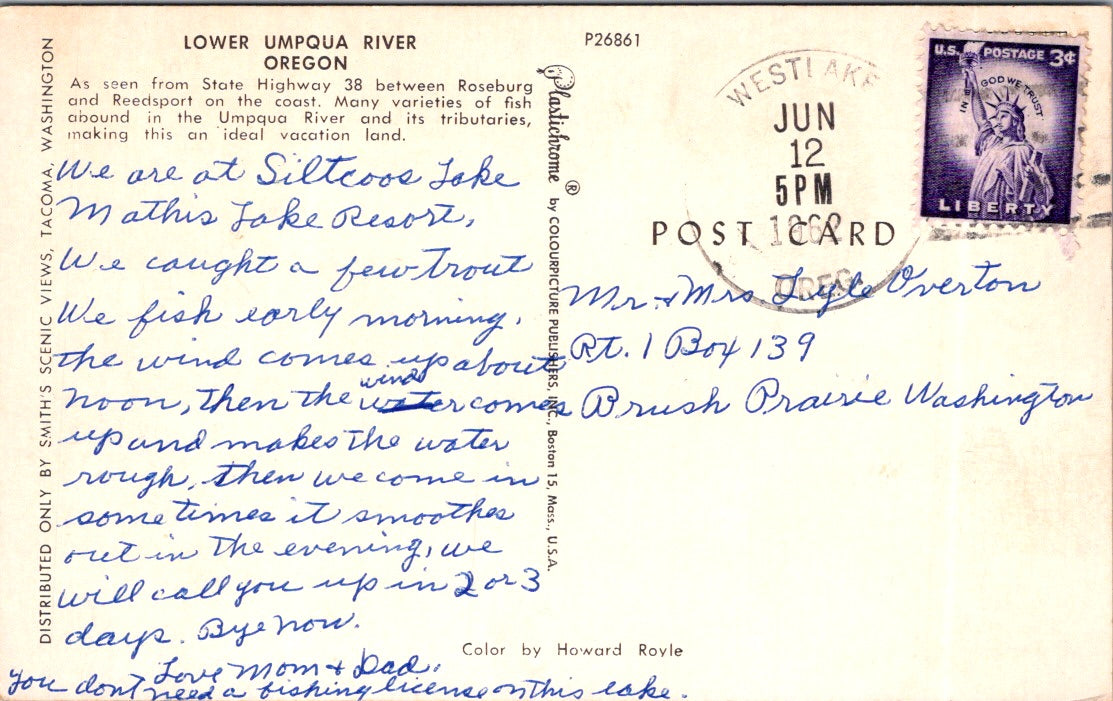 LOWER UMPQUA RIVER
OREGON
As seen from State Highway 38 between Roseburg
and Reedsport on the coast. Many varieties of fish
abound in the Umpqua River and its tributaries,
making this an ideal vacation land.
We are at Siltcoos Lake
Mathis Lake Resort,
We caught a few trout
We fish early morning,
the wind comes up about
Noon, then the water comes
wind
up and makes the water
rough, then we come in
some times it smoothes
out in the evening, we
will call you up in 2 or 3
days. Bye now.
Love Mom & Dad.
You dont need a fishing license on this lake.
DISTRIBUTED ONLY BY SMITH'S SCENIC VIEWS, TACOMA, WASHINGTON
P26861
Plastichrome ® by COLOURPICTURE PUBLISHERS, INC., Boston 15, Mass., U.S.A.
WESTLAKE
JUN
12
5 PM
OREG.
U.S. POSTAGE 3¢
IN GOD WE TRUST
LIBERTY
POST CARD
Mr. & Mrs Lyle Overton
Rt. 1 Box 139
Brush Prairie Washington
Color by Howard Royle